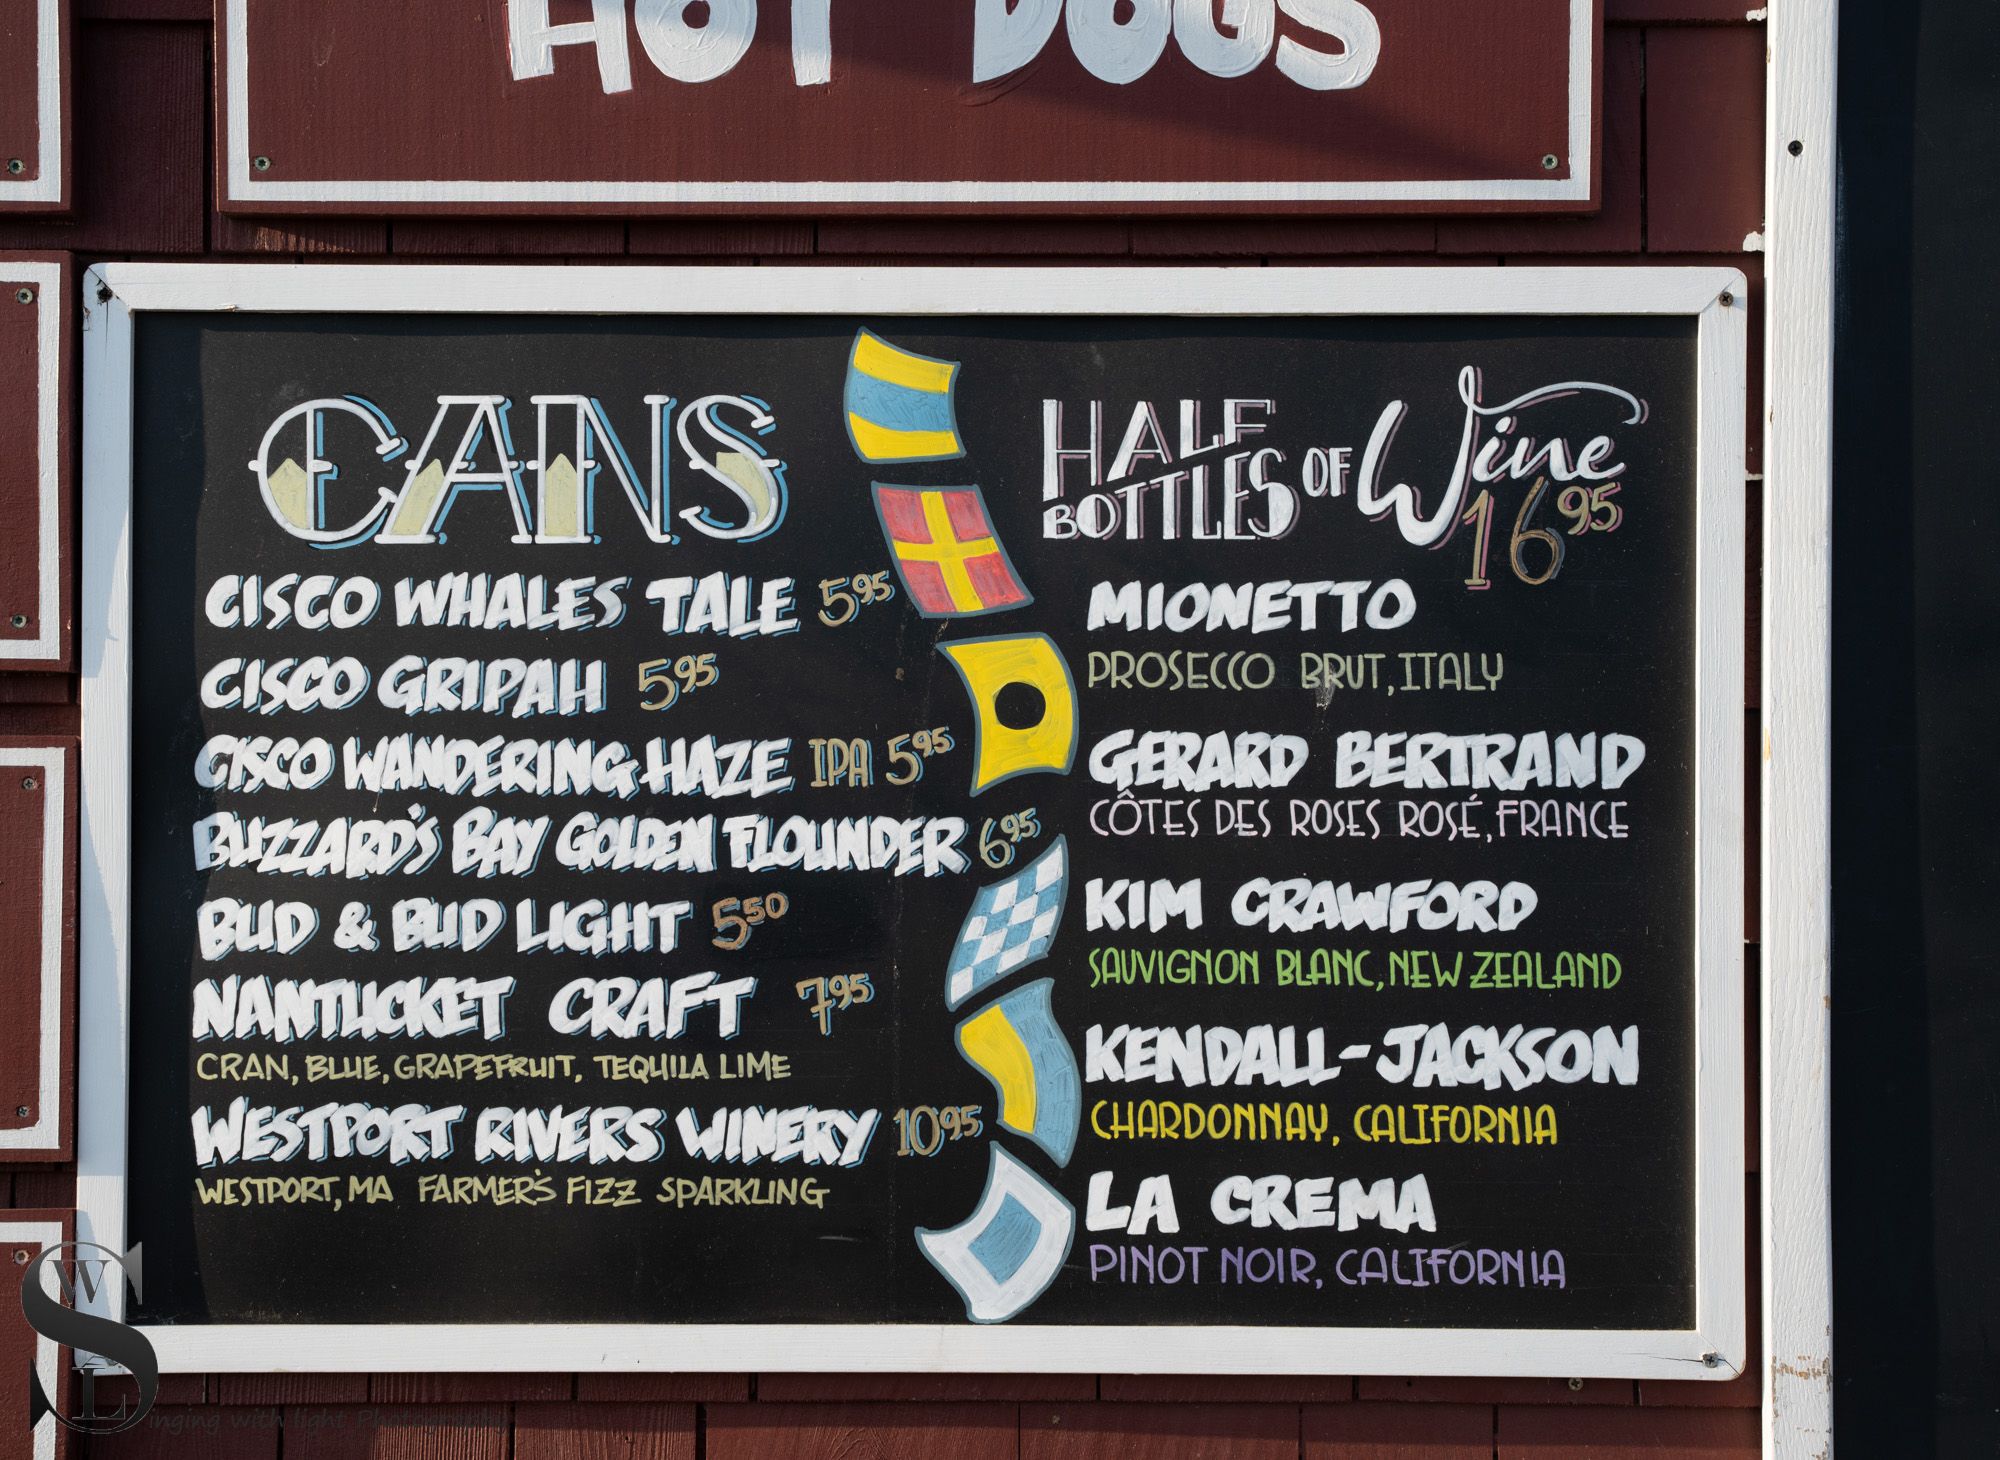 HOT DOGS
CANS
CISCO WHALES TALE 5.95
CISCO GRIPAH 5.95
CISCO WANDERING HAZE IPA 5.95
BUZZARD'S BAY GOLDEN FLOUNDER 6.95
BUD & BUD LIGHT 5.50
NANTUCKET CRAFT 7.95
CRAN, BLUE, GRAPEFRUIT, TEQUILA LIME
WESTPORT RIVERS WINERY 10.95
WESTPORT, MA FARMER'S FIZZ SPARKLING
HALF
BOTTLES OF Wine
16.95
MIONETTO
PROSECCO BRUT, ITALY
GERARD BERTRAND
CÔTES DES ROSES ROSÉ, FRANCE
KIM CRAWFORD
SAUVIGNON BLANC, NEW ZEALAND
KENDALL-JACKSON
CHARDONNAY, CALIFORNIA
LA CREMA
PINOT NOIR, CALIFORNIA
SWL
Singing with light Photography